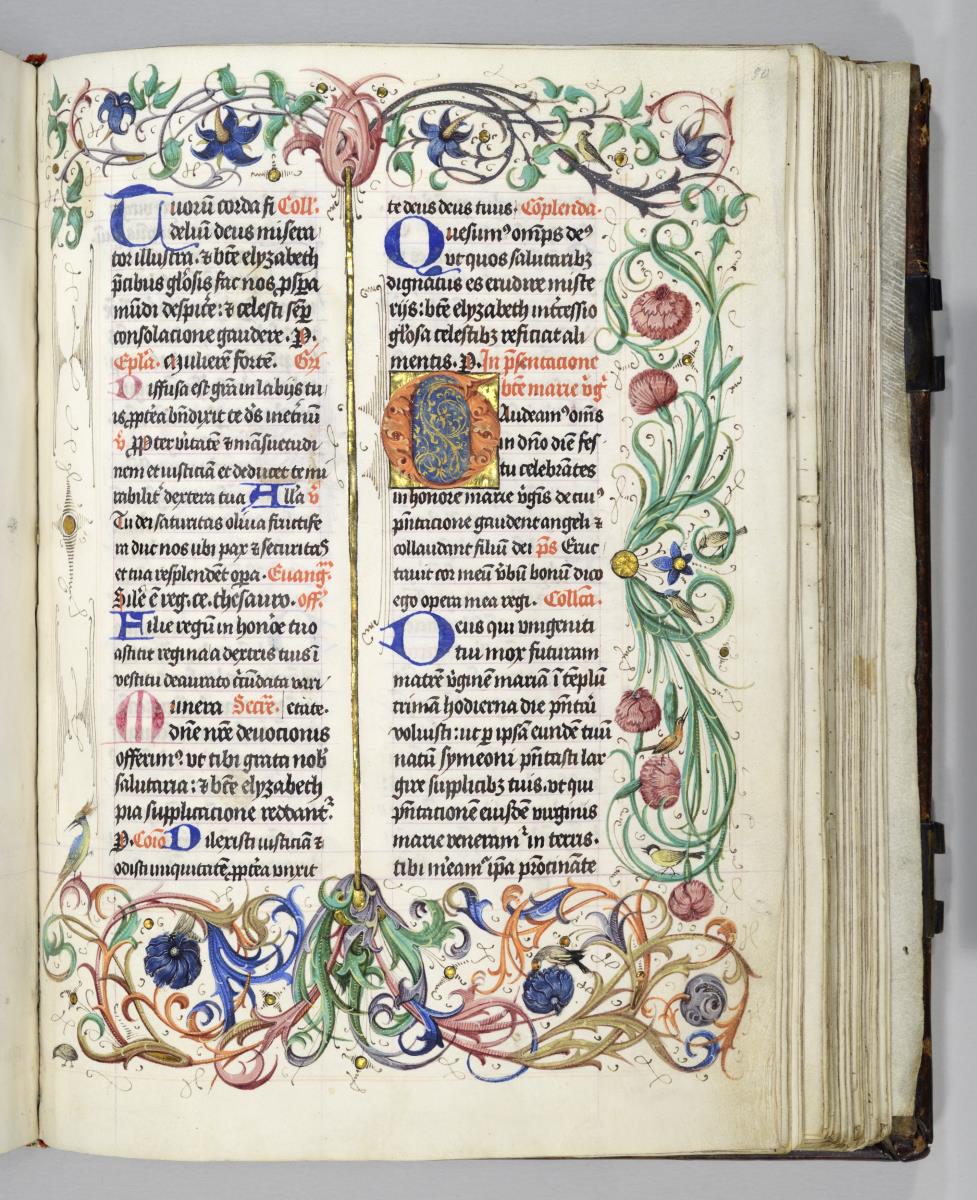 80
Tuorū corda fi Coll.
delıū deus misera
tor illustra. & btē elyzabeth
p̄cibus glōsis fac nos p̱spa
mūdi despic̄e: & celesti sēp̱
consolacione gaudere. P̱.
Epl̄a. Mulierē fortē. Gr̄
Diffusa est gr̄a in labijs tu
is p̱pterea bn̄dixit te dꝰs in etnū
v̄ P̱pter vitatē & māsuetudi
nem et iusticiā et deducet te mi
rabilit dextera tua Alla v̄
Tu dei saturitas oliua fructife
ra duc nos ubi pax & securitas
et tua resplendēt op̱a. Euang̅.
Sil̄e ē reg. ce. thesauro. off.
Filie regū in honōe tuo
astitit regina a dextris tuis ī
vestitu deaurato circūdata vari
Munera Secr̄e. etate.
dn̄e nr̄e deuocionis
offerimꝰ ut tibi grata nob̄
salutaria: & btē elyzabeth
pia supplicacione reddant.
P̱. Cōio Dilexisti iusticiā &
odisti iniquitatē p̱pterea vnxit
te deus deus tuus. Cōplenda.
Quesumꝰ omp̄s deꝰ
vt quos salutaribꝫ
dignatus es erudire miste
rijs: btē elyzabeth int̄cessio
glōsa celestibꝫ reficiat ali
mentis. P̱. In p̄sentacione
btē marie v̄g̅
Gaudeamꝰ om̄s
in dn̄o diē fes
tū celebrātes
in honore marie v̄gis de cuiꝰ
p̄ntacione gaudent angeli &
collaudant filiū dei p̄s Eruc
tauit cor meū v̄bū bonū dico
ego opera mea regi. Collc̄a.
Deus qui vnigeniti
tui mox futuram
matrē v̄ginē mariā ī tēplū
trimā hodierna die p̄ntari
voluisti: ut p̱ ip̄sā eundē tuū
natū symeoni p̄ntasti lar
gire supplicibꝫ tuis, vt qui
p̄ntacionē eiusdē virginis
marie veneram̄ in terris.
tibi m̄eamur ip̄a p̄ocināte